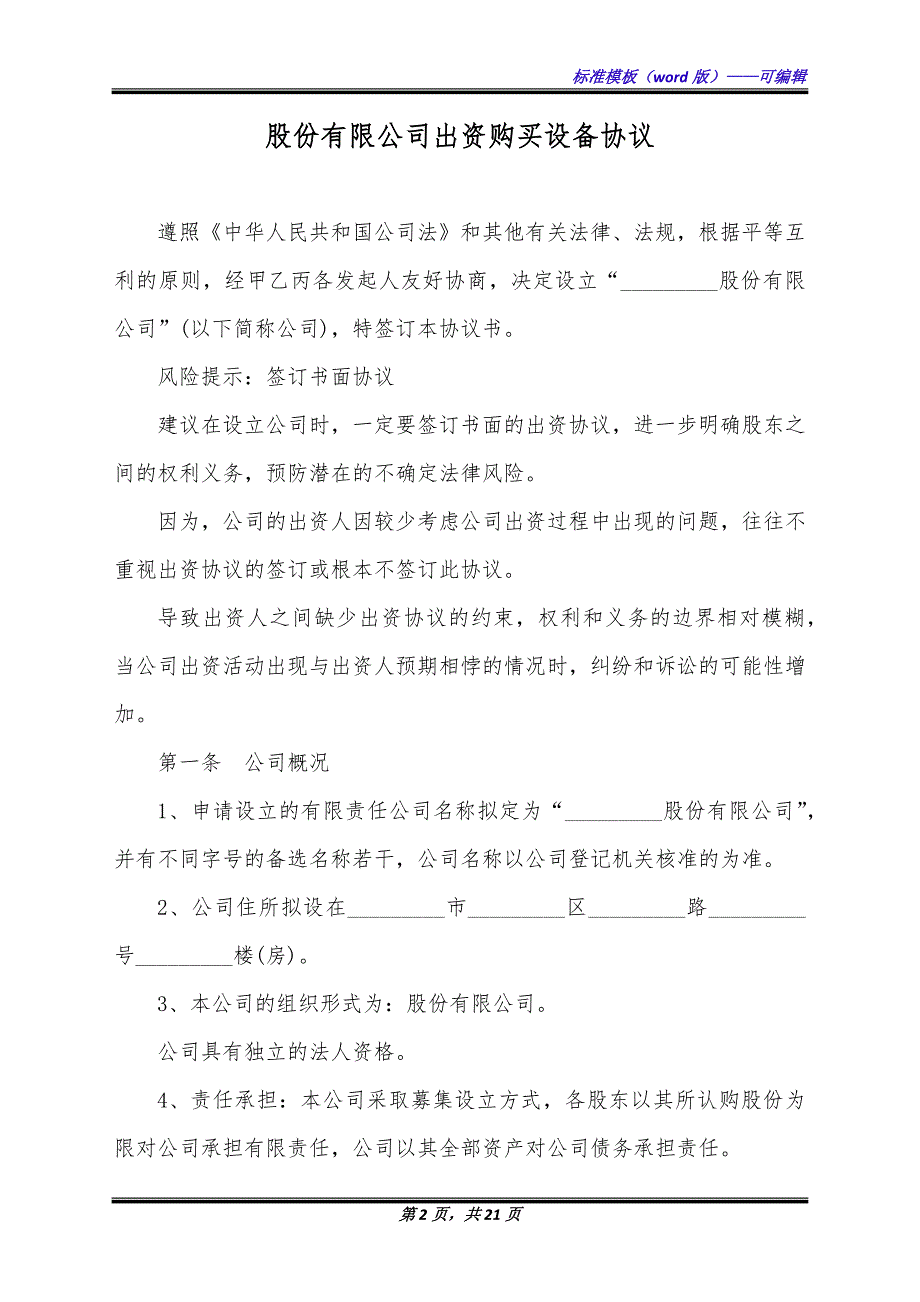 标准模板（word 版）——可编辑
股份有限公司出资购买设备协议
遵照《中华人民共和国公司法》和其他有关法律、法规，根据平等互
利的原则，经甲乙丙各发起人友好协商，决定设立“_________股份有限
公司”(以下简称公司)，特签订本协议书。
风险提示：签订书面协议
建议在设立公司时，一定要签订书面的出资协议，进一步明确股东之
间的权利义务，预防潜在的不确定法律风险。
因为，公司的出资人因较少考虑公司出资过程中出现的问题，往往不
重视出资协议的签订或根本不签订此协议。
导致出资人之间缺少出资协议的约束，权利和义务的边界相对模糊，
当公司出资活动出现与出资人预期相悖的情况时，纠纷和诉讼的可能性增
加。
第一条　公司概况
1、申请设立的有限责任公司名称拟定为“_________股份有限公司”，
并有不同字号的备选名称若干，公司名称以公司登记机关核准的为准。
2、公司住所拟设在_________市_________区_________路_________
号_________楼(房)。
3、本公司的组织形式为：股份有限公司。
公司具有独立的法人资格。
4、责任承担：本公司采取募集设立方式，各股东以其所认购股份为
限对公司承担有限责任，公司以其全部资产对公司债务承担责任。
第 2 页，共 21 页